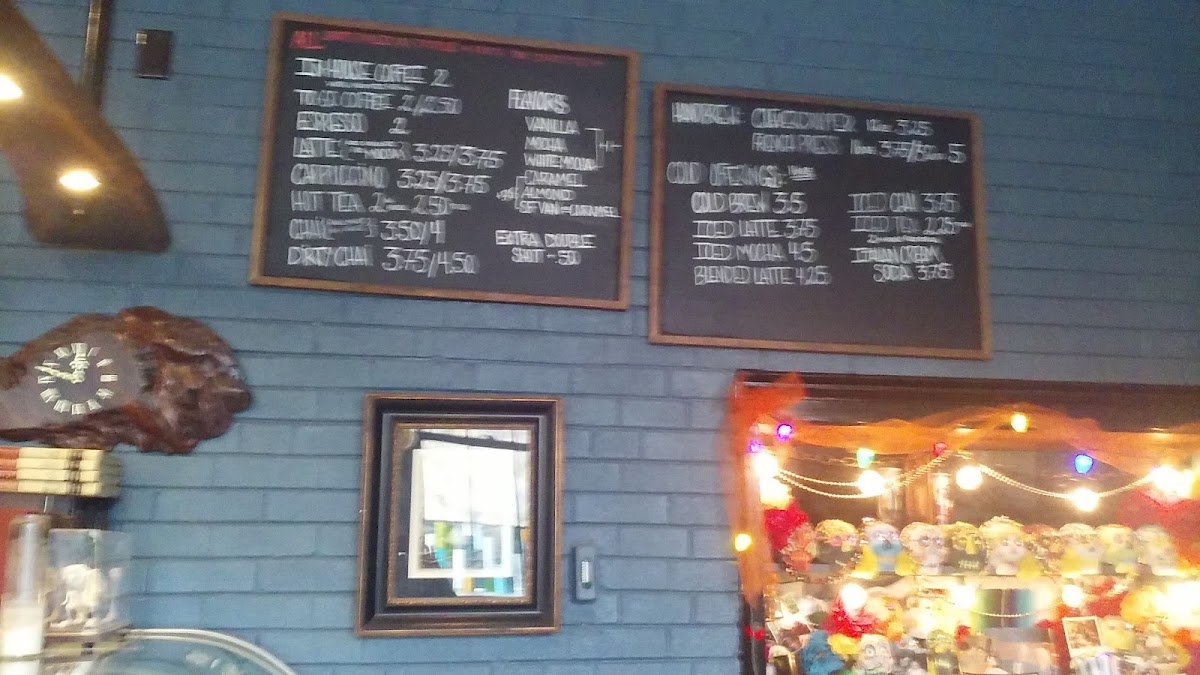 ALL
IN-HOUSE COFFEE 2
TO GO COFFEE 2/2.50
ESPRESSO 2
LATTE 3.25/3.75
CAPPUCCINO 3.25/3.75
HOT TEA 2 2.50
CHAI 3.50/4
DIRTY CHAI 3.75/4.50
FLAVORS
VANILLA
MOCHA
WHITE MOCHA
CARAMEL
ALMOND
SF VAN + CARAMEL
EXTRA DOUBLE
SHOT - .50
HANDBREW: CLEVER DRIPPER 3.25
FRENCH PRESS 3.75/ 5
COLD OFFERINGS:
COLD BREW 3.5
ICED LATTE 3.75
ICED MOCHA 4.5
BLENDED LATTE 4.25
ICED CHAI 3.75
ICED TEA 2.25
ITALIAN CREAM
SODA 3.75